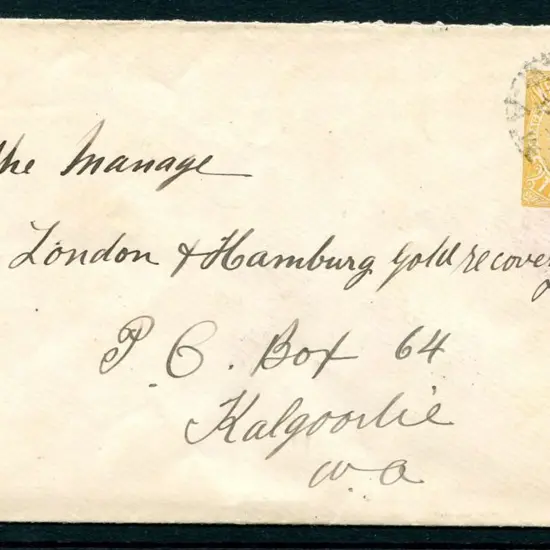 The Manage
London & Hamburg Gold recovery
P. O. Box 64
Kalgoorlie
W. A